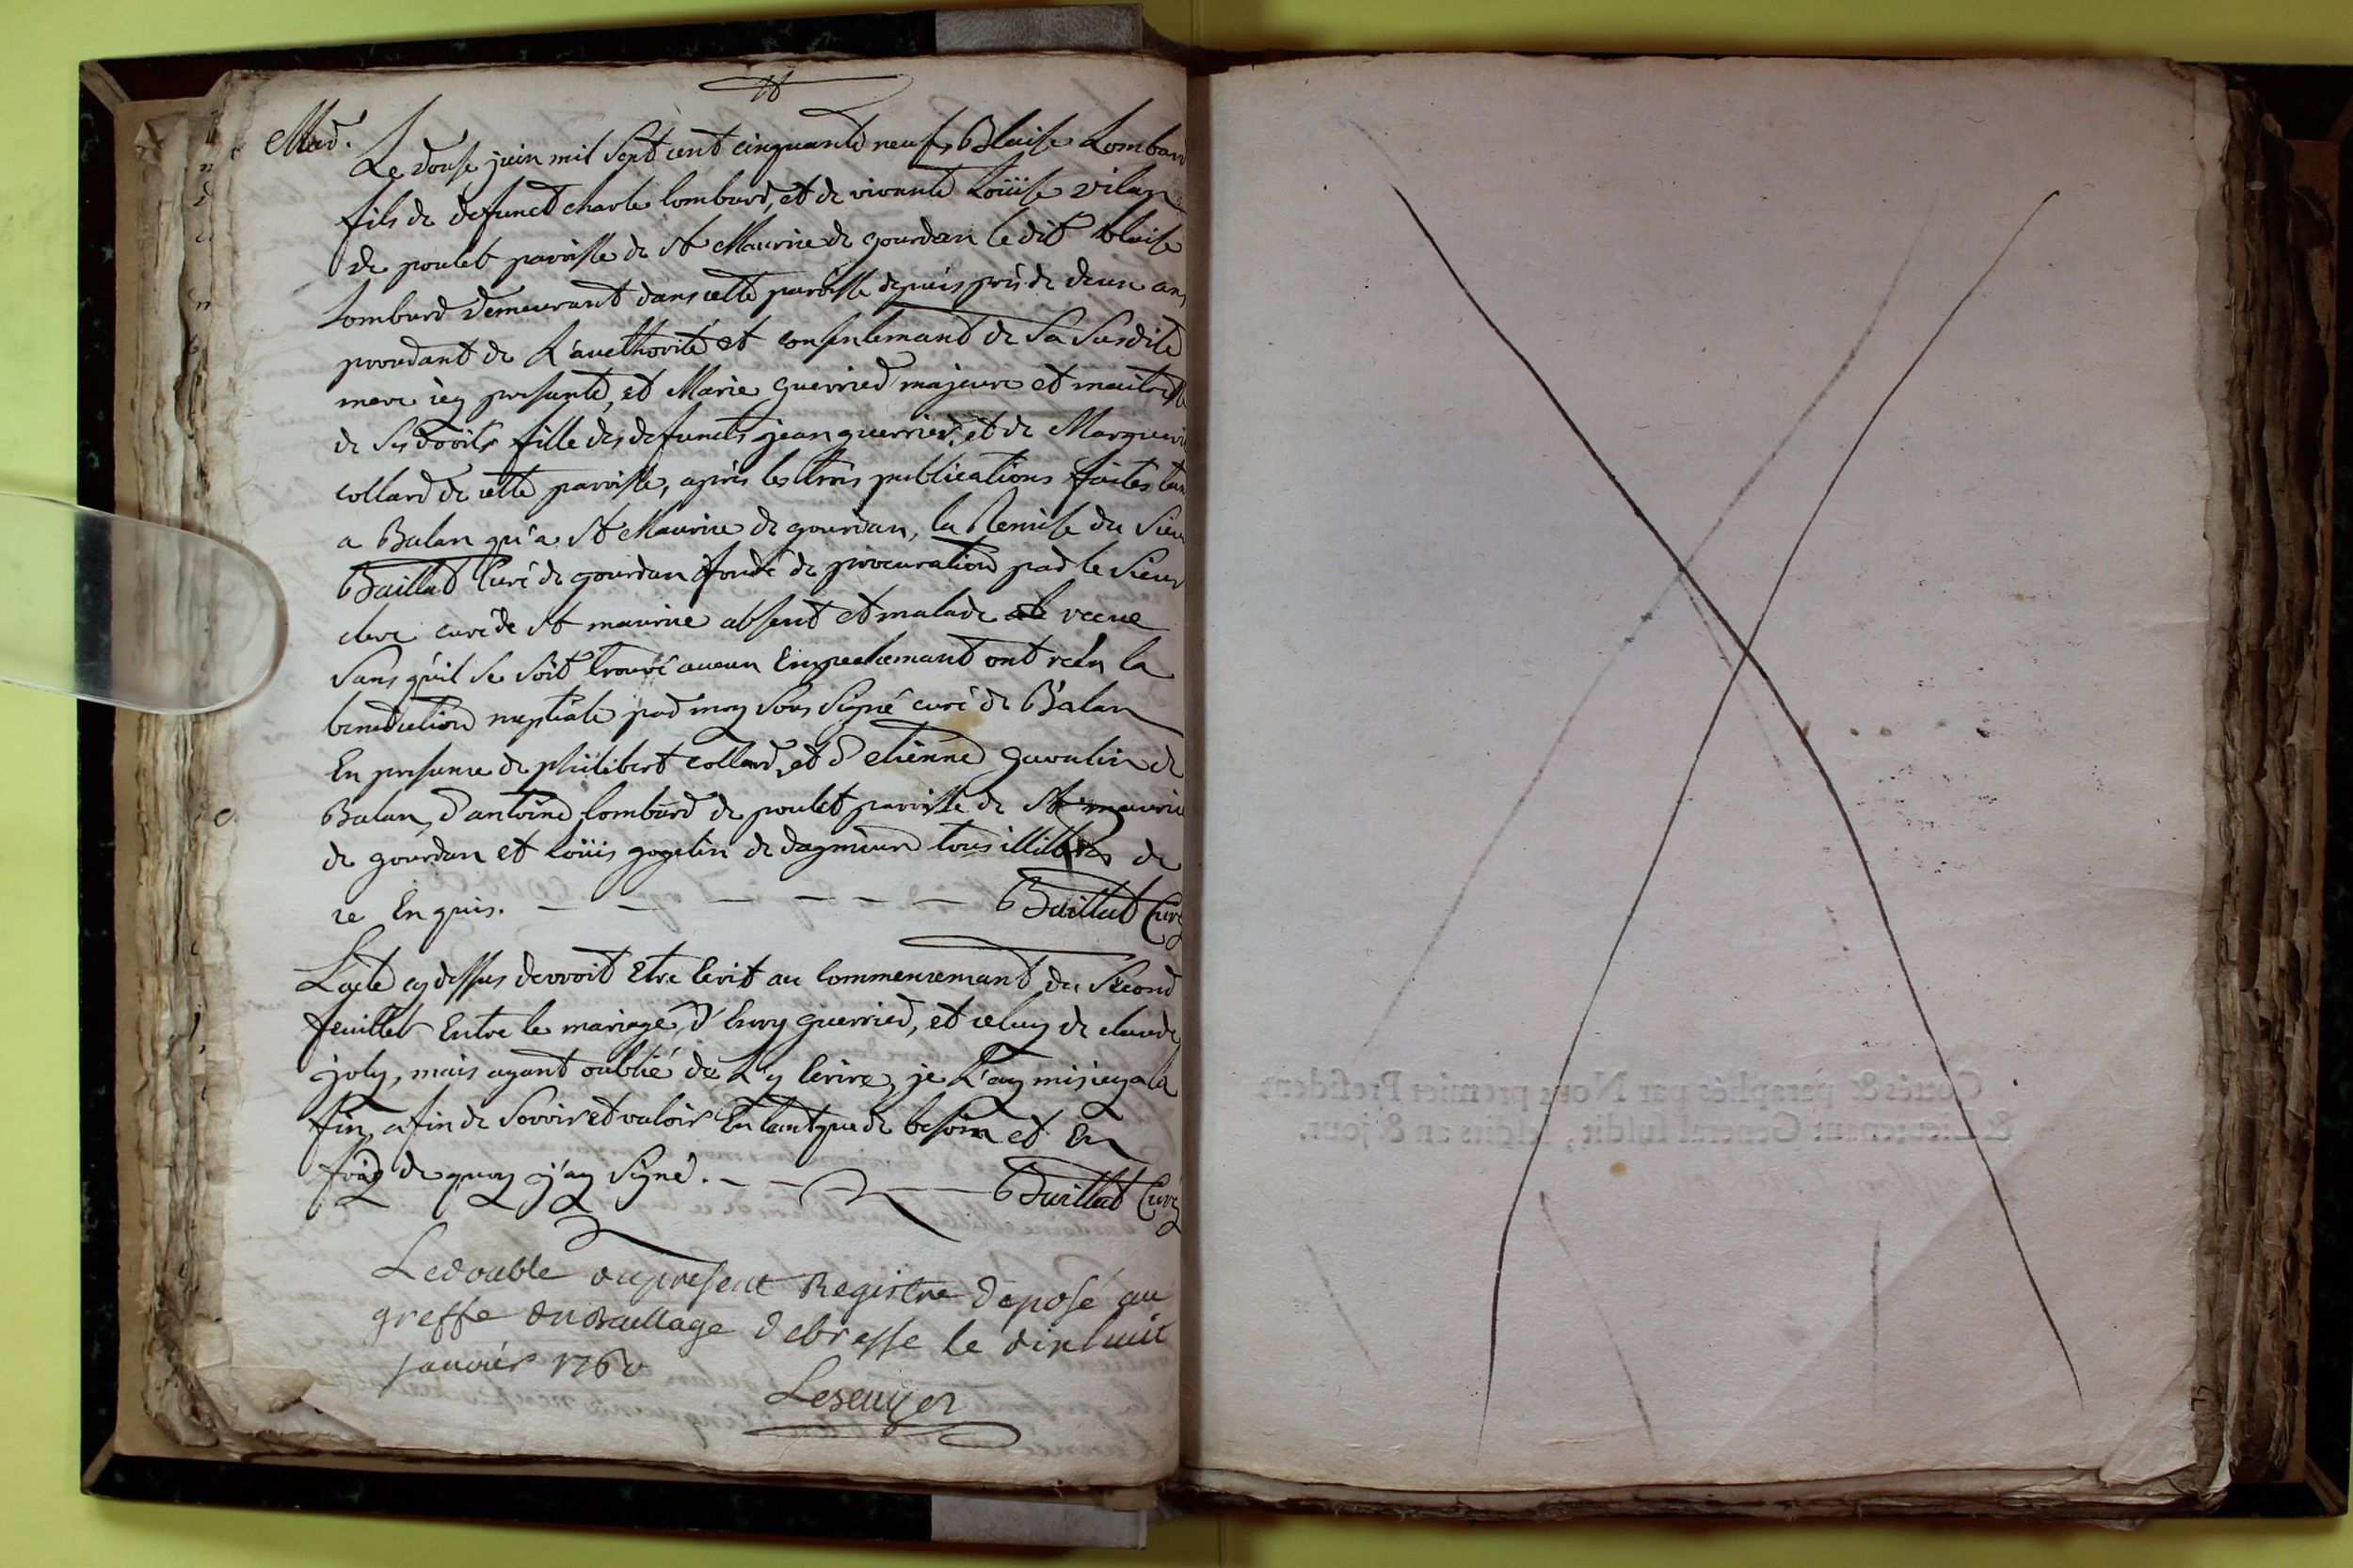 Mar.
Le douse juin mil sept cent cinquante neuf, Blaise Lombar
fils de defunct charle lombard, et de vivante Loüise vilan
de poulet paroisse de St Maurice de gourdan le dit blaise
Lombard demeurant dans cette paroisse depuis près de deux ans
procedant de L'aucthorité et consentemant de Sa Susdite
mere icy presente, et Marie guerrier majeure et maitresse
de Ses droits fille des defuncts jean guerrier, et de Margueri
collard de cette paroisse, après les trois publications faites tan
a Balan qu'a St Maurice de gourdan, la Remise du Sieur
Baillat Curé de gourdan fondé de procuration par le Sieur
clerc curé de St maurice absent et malade recue
Sans qu'il se soit trouvé aucun Empechemant ont recu la
benediction nuptiale par moy Sous Signé curé de Balan
En presence de philibert collard, et d'etienne gavalin de
Balan, d'antoine lombard de poulet paroisse de St maurice
de gourdan et loüis gogelin de dagnieux tous illitéres de
ce Enquis. — — — — — — Baillat Curé
L'acte cy dessus devroit Etre Ecrit au Commencemant du Second
feuillet Entre le mariage d'Envy guerrier, et celuy de claude
joly, mais ayant oublié de L'y Ecrire, je L'ay mis icy a la
fin, afin de Servir et valoir En tant que de besoin et En
foiy de quoy j'ay Signé. — — — Baillat Curé
Le double du present Registre deposé au
greffe du Baillage de bresse le dix huit
janvier 1760
Cottés & paraphés par Nous premier President
& Lieutenant General susdit, lesdits an & jour.